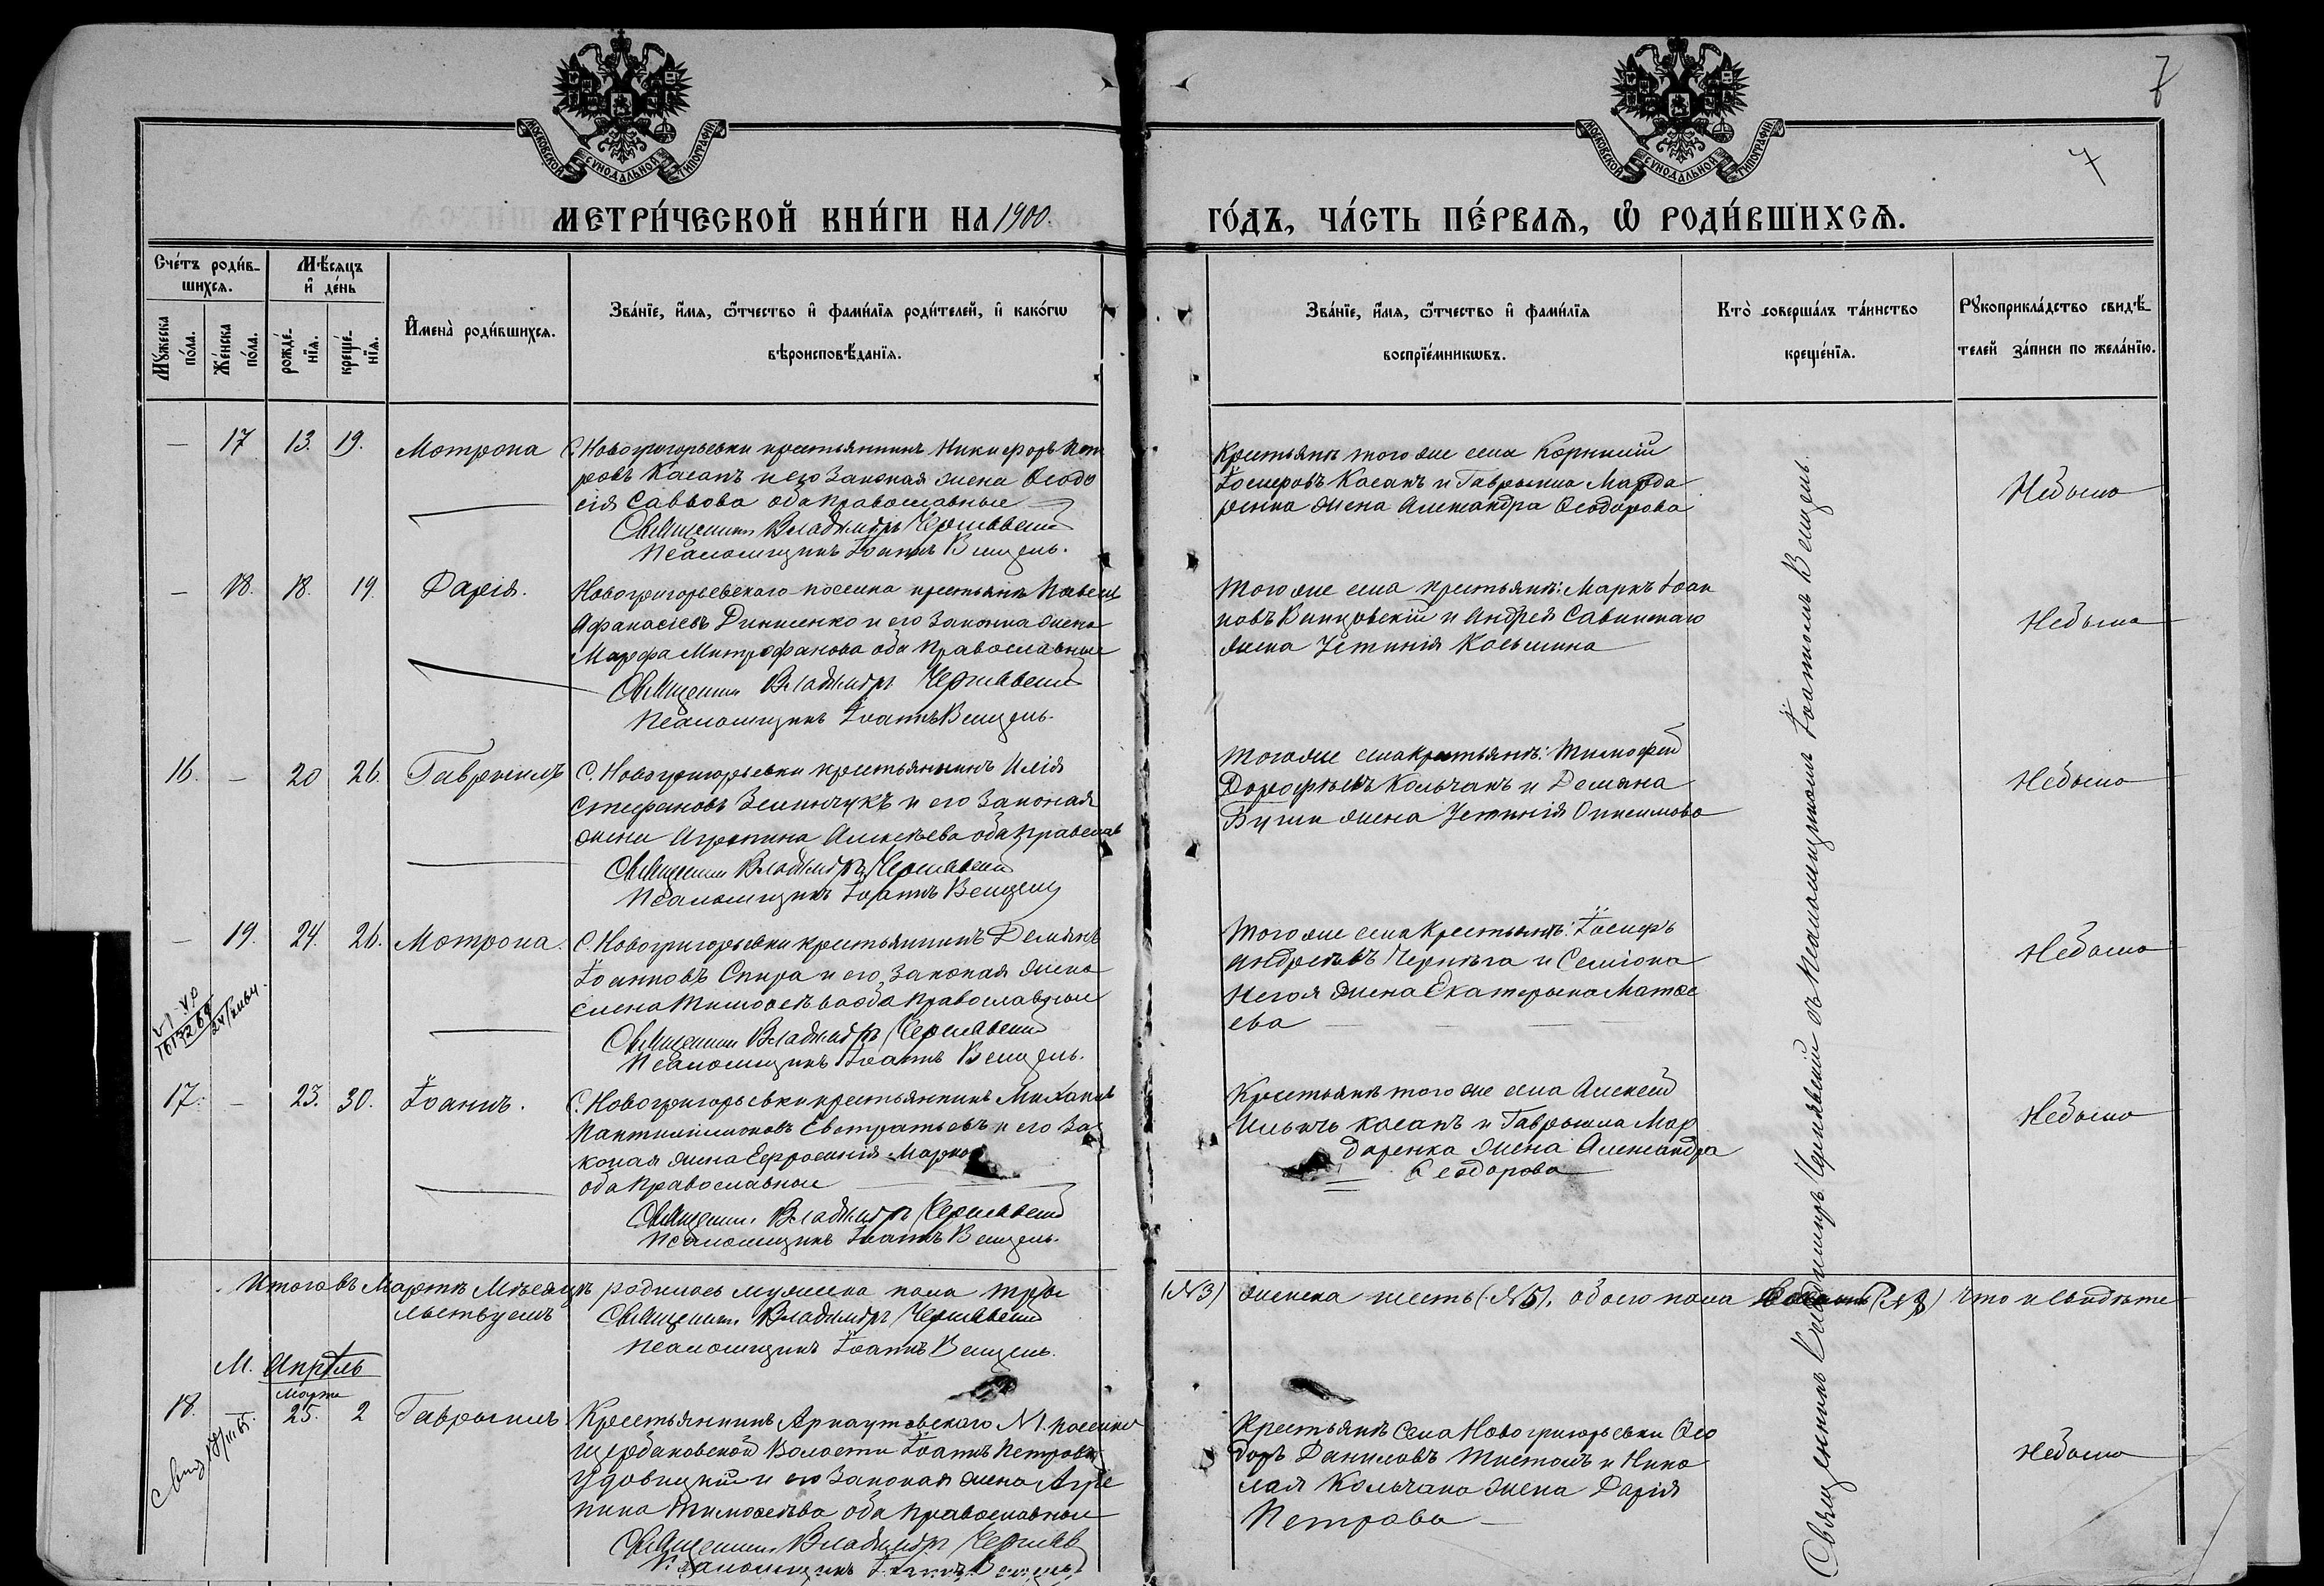 7
7
МОСКОВСКОЙ СѴНОДАЛЬНОЙ ТИПОГРАФІИ
МОСКОВСКОЙ СѴНОДАЛЬНОЙ ТИПОГРАФІИ
МЕТРИ́ЧЕСКОЙ КНИ́ГИ НА 1900.
ГО́ДЪ, ЧА́СТЬ ПЕ́РВАѦ, Ѽ РОДИ́ВШИХСѦ.
Сче́тъ роди́в-
шихсѧ.
Мꙋ́жеска по́ла.
Же́нска по́ла.
Мѣ́сѧцъ
и҆ де́нь
рожде́-
нїѧ.
креще́-
нїѧ.
И҆мена̀ роди́вшихсѧ.
Зва́нїе, и҆́мѧ, ѻ҆́тчество и҆ фами́лїѧ роди́телей, и҆ како́гѡ
вѣроисповѣ́данїѧ.
Зва́нїе, и҆́мѧ, ѻ҆́тчество и҆ фами́лїѧ
воспрїе́мникѡвъ.
Кто̀ соверша́лъ та́инство
креще́нїѧ.
Рꙋкоприкла́дство свидѣ́-
телей за́писи по жела́нїю.
— 17 13. 19. Мотрона
С. Новогригорьевки крестьянинъ Никифоръ Пет
ровъ Касапъ и его законая жена Ѳеодо
сія Саввова оба православные
Священникъ Владиміръ Чернявскій
Псаломщикъ Іоаннъ Венцель.
Крестьяне того же села Корнилій
Іосифовъ Касапъ и Гавриила Марда
ренка жена Александра Ѳеодорова
Небыло
— 18. 18. 19. Дарія.
Новогригорьевского поселка крестьянинъ Павелъ
Афанасіевъ Динисенко и его законна жена
Марфа Митрофанова оба православные
Священникъ Владиміръ Чернявскій
Псаломщикъ Іоаннъ Венцель.
Того же села крестьяне: Маркъ Іоан
новъ и Андрея
жена Устинія Косьмина
Небыло
16. — 20 26 Гавриилъ
С. Новогригорьевки крестьянинъ Илія
Стефановъ Зелинчукъ и его законая
жена Агрепина Алексѣева оба православ
Священникъ Владиміръ Чернявскій
Псаломщикъ Іоаннъ Венцель
Того же села крестьяне: Тимофей
Дорофѣевъ Кольчакъ и Демяна
жена Устинія Онисимова
Небыло
— 19. 24. 26. Мотрона.
С. Новогригорьевки крестьянинъ Демянъ
Іоанновъ Спира и его законая жена
Елена Тимоѳеѣва оба православные
Священникъ Владиміръ Чернявскій
Псаломщикъ Іоаннъ Венцель.
Того же села крестьяне: Іосифъ
Андреевъ Чернѣга и Семіона
жена Екатерына Матѳе
ева
Небыло
17. — 23. 30. Іоаннъ.
С. Новогригорьевки крестьянинъ Михаилъ
Пантилиимоновъ Евстратьевъ и его за
коная жена Ефросинія Марко
оба православные
Священникъ Владиміръ Чернявскій
Псаломщикъ Іоаннъ Венцель.
Крестьяне того же села Алексей
Ильичъ Касапъ и Гавриила Мар
даренка жена Александра
Ѳеодорова
Небыло
Итого въ Мартѣ Мѣсяцѣ родилось мужеска пола три (№3) женска шесть (№5). обоего пола (№8) что и свидѣте
льствуемъ
Священникъ Владиміръ Чернявскій
Псаломщикъ Іоаннъ Венцель.
М. Апрѣль
Марта
18. — 25. 2 Гавриилъ
Крестьянинъ Арнаутовского №1. поселка
Щербановской Волости Іоаннъ Петровъ
Удовицкій и его законая жена Агре
пина Тимоѳеѣва оба православные
Священникъ Владиміръ Черняв
Псаломщикъ Іоаннъ Венцель
Крестьяне села Новогригорьевки Ѳео
доръ Даниловъ и Нико
лая Кольчака жена Дарія
Петрова —
Небыло
Священникъ Владиміръ Чернявскій съ псаломщикомъ Іоанномъ Венцель.